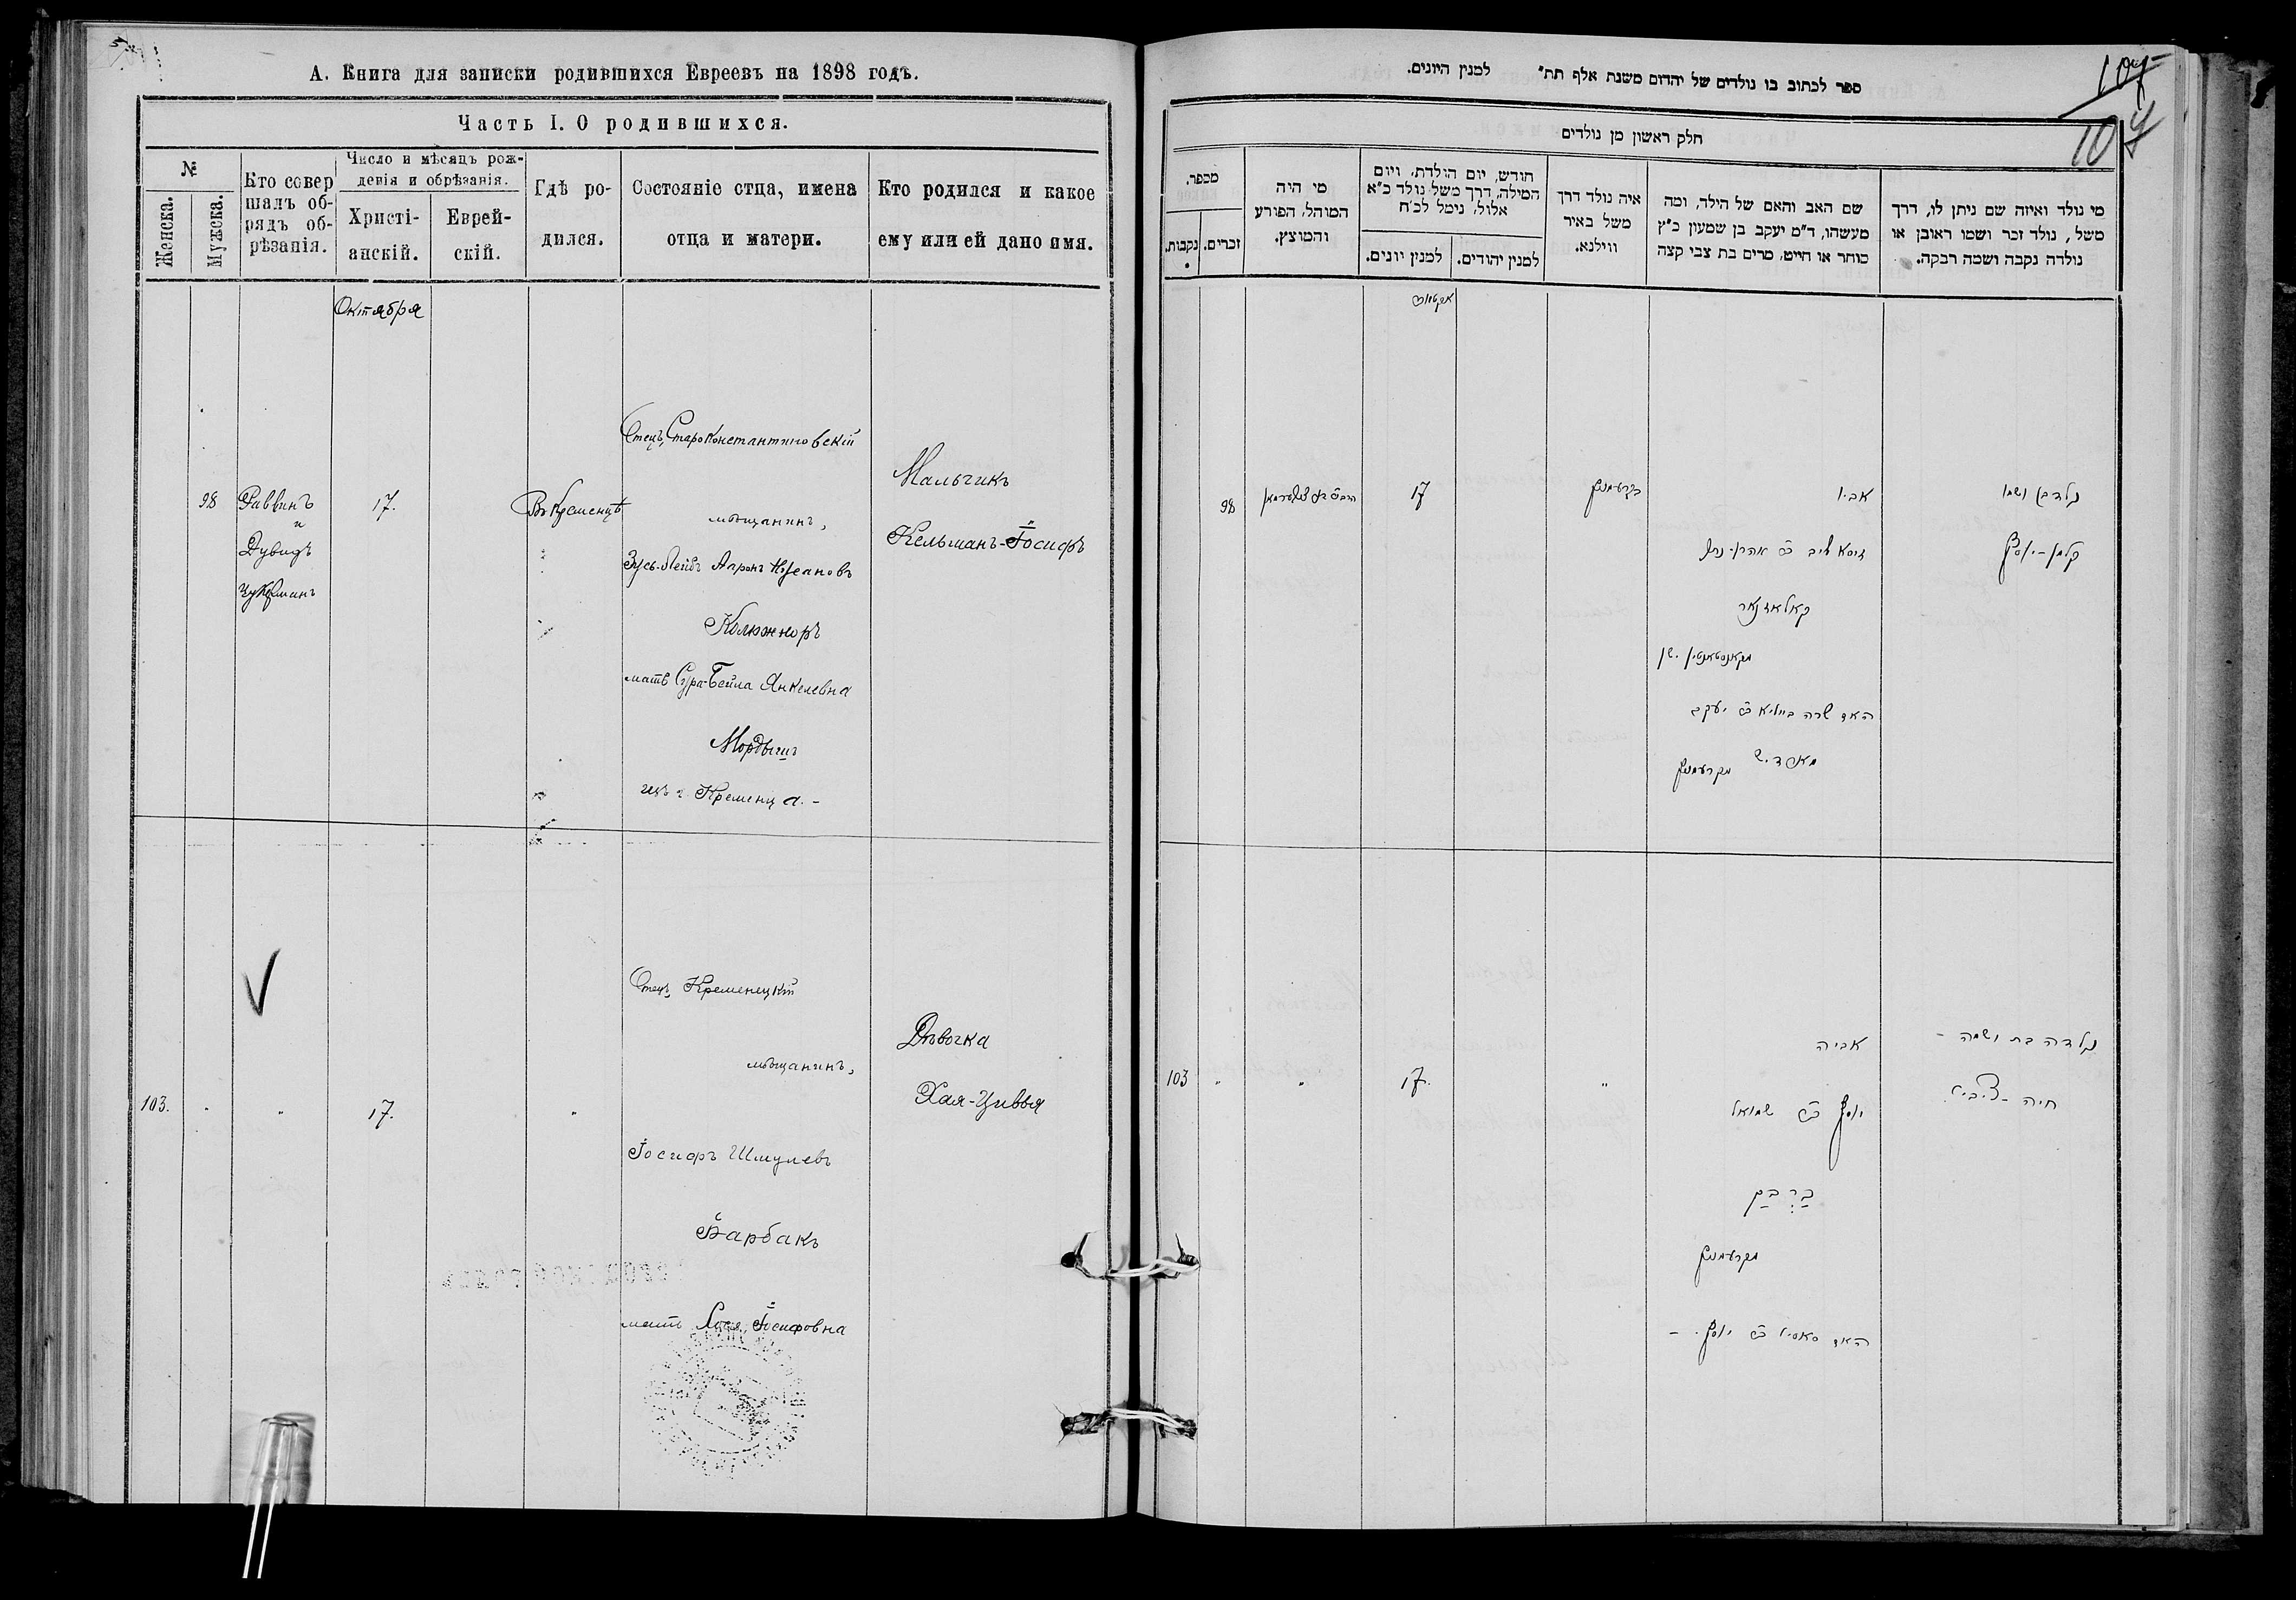 А. Книга для записки родившихся Евреевъ на 1898 годъ.
Часть I. О родившихся.
№
Женска.
Мужска.
Кто совер
шалъ об-
рядъ об-
рѣзанія.
Число и мѣсяцъ рож-
денія и обрѣзанія.
Христі-
анскій.
Еврей-
скій.
Гдѣ ро-
дился.
Состояніе отца, имена
отца и матери.
Кто родился и какое
ему или ей дано имя.
Октября
98
Раввинъ
и
Дувидъ
17.
Въ Кременцѣ
Отецъ, Староконстантиновскій
мѣщанинъ,
Зусь-Лейбъ Ааронъ
Колюжноръ
мать Сура-Бейла Янкелевна
г. Кременца. -
Мальчикъ
Кельманъ-Іосифъ
103.
"
"
17.
"
Отецъ, Кременецкій
мѣщанинъ,
Іосифъ Шмулевъ
Барбакъ
мать Іосифовна
Дѣвочка
Хая-Цивья
107
107
ספר לכתוב בו נולדים של יהדום משנת אלף תת״ למנין היונים.
חלק ראשון מן נולדים
מי נולד ואיזה שם ניתן לו, דרך
משל, נולד זכר ושמו ראובן או
נולדה נקבה ושמה רבקה.
שם האב והאם של הילד, ומה
מעשהו, ד״מ יעקב בן שמעון כ״ץ
סוחר או חייט, מרים בת צבי קצה
איה נולד דרך
משל באיר
ווילנא.
חודש, יום הולדת, ויום
המילה, דרך משל נולד כ״א
אלול, נימל לכ״ח
למנין יהודים.
למנין יונים.
מי היה
המוהל, הפורע
והמוצץ.
מספר.
זכרים.
נקבות.
נולד בן ושמו
קלמן - יוסף
אביו
זוסא לייב ב״ר אהרן-
האם שרה ביילא ב״ר יעקב
מקרעמניץ
בקרעמניץ
17
98
נולדה בת ושמה -
חיה - ציביא
אביה
יוסף ב״ר שמואל
ברבק
מקרעמניץ
האם ב״ר יוסף. -
"
17.
"
"
103